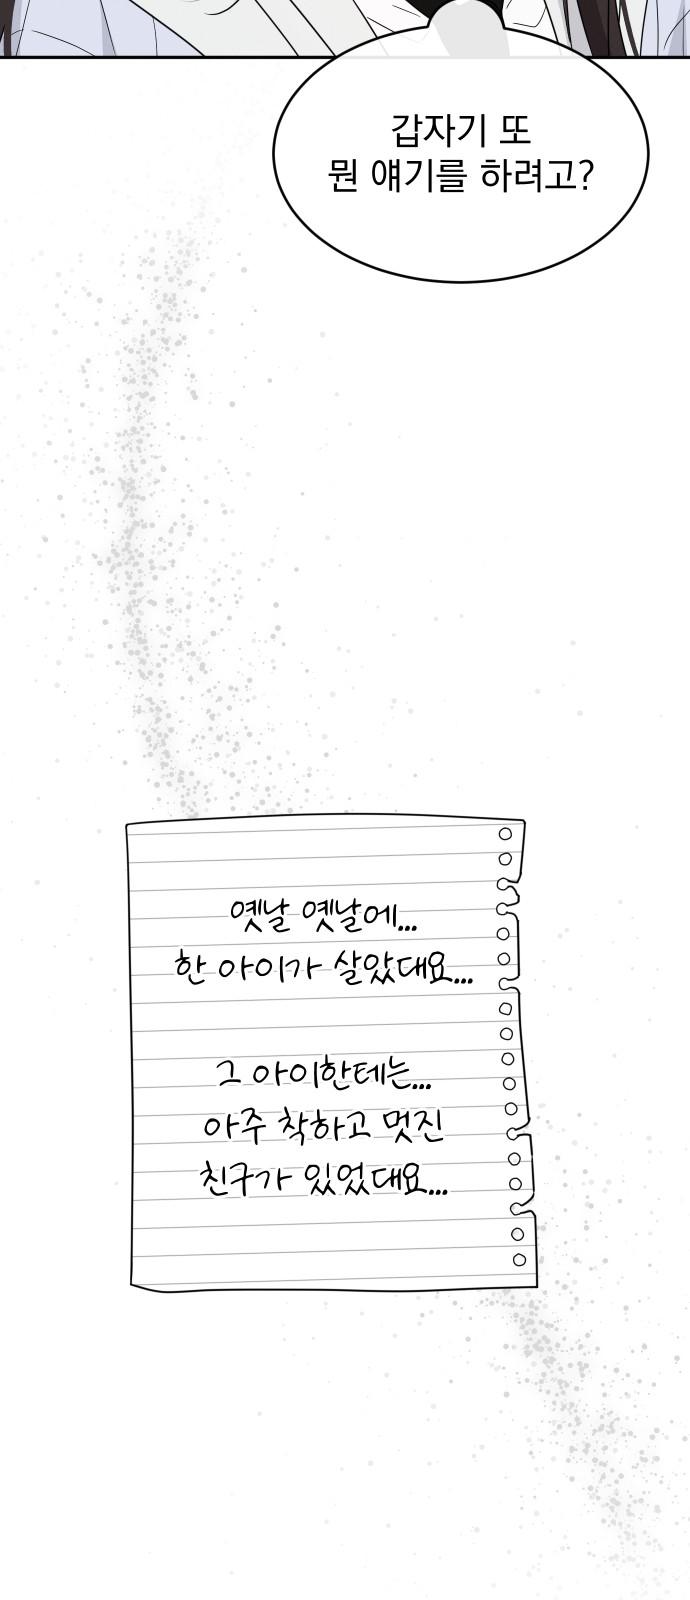 갑자기 또
뭔 얘기를 하려고?
옛날 옛날에...
한 아이가 살았대요...
그 아이한테는...
아주 착하고 멋진
친구가 있었대요...